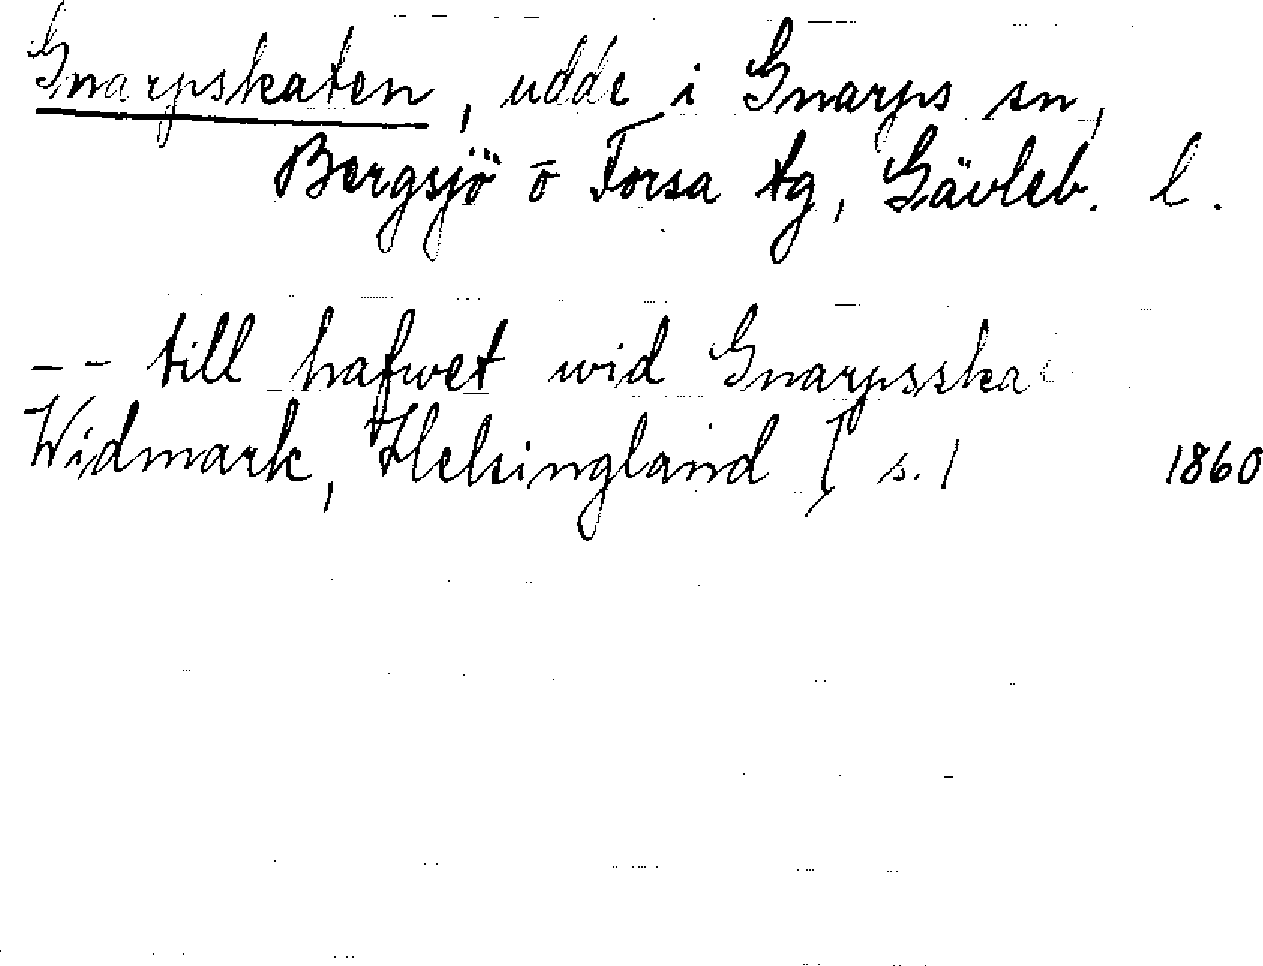 Gnarpskaten, udde i Gnarps sn,
Bergsjö o Forsa tg, Gävleb. l.
-- till hafwet wid
Widmark, Helsingland I s. 1 1860